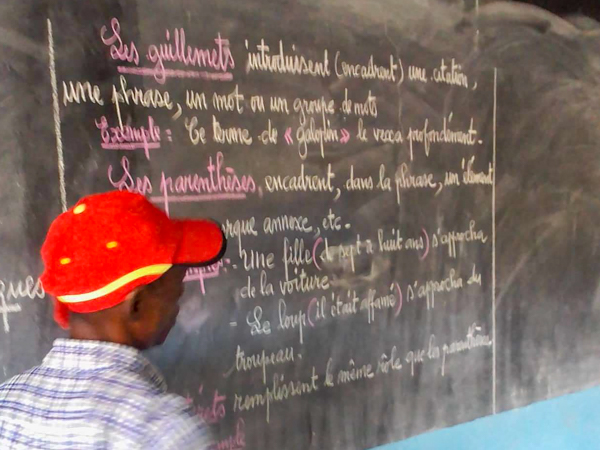 Les guillemets introduisent (encadrent) une citation,
une phrase, un mot ou un groupe de mots
Exemple : Ce terme de « galopin » le vexa profondément.
Les parenthèses, encadrent, dans la phrase, un élément
rque annexe, etc.
- Une fille (de sept à huit ans) s'approcha
de la voiture.
ques
- Le loup (il était affamé) s'approcha du
troupeau.
remplissent le même rôle que les parenthèses